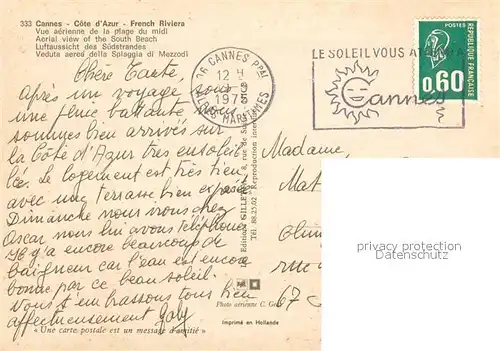 333 Cannes - Côte d'Azur - French Riviera
Vue aérienne de la plage du midi
Aerial view of the South Beach
Luftaussicht des Südstrandes
Veduta aerea della Spiaggia di Mezzodi
Chère Tante,
Après un voyage sous
une pluie battante nous
sommes bien arrivés sur
la Côte d'Azur très ensoleil
lée. Le logement est très bien
avec une terrasse bien exposée
Dimanche nous nous chez
Oscar nous lui avons téléphoné
Il y a encore beaucoup de
baigneur car l'eau est encore
bonne par ce beau soleil.
Nous t'embrassons tous bien
affectueusement Gaby
« Une carte postale est un message d'amitié »
Photo aérienne C.
Imprimé en Hollande
Les Editions GILLETTA 8, rue de
Tél. 88.25.02 Reproduction
06 CANNES Ppal
12 H
1975
ALPES-MARITIMES
LE SOLEIL VOUS
Cannes
POSTES
REPUBLIQUE FRANÇAISE
0,60
Madame,
Mat
rue
67
privacy protection
AnsichtskartenHandel.de